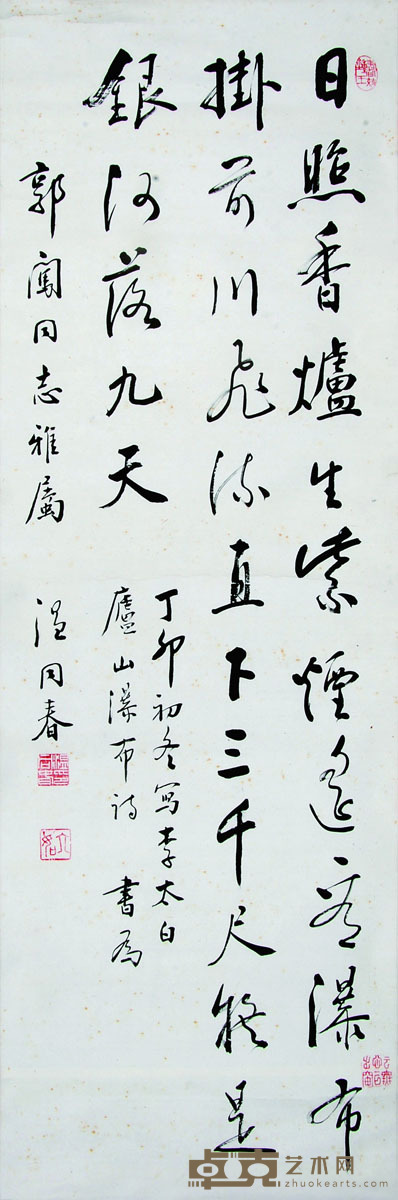 日照香爐生紫煙遙看瀑布
掛前川飛流直下三千尺疑是
銀河落九天
丁卯初冬寫李太白
廬山瀑布詩 書為
郭闖同志雅屬 溫同春
卓克艺术网
zhuokearts.com